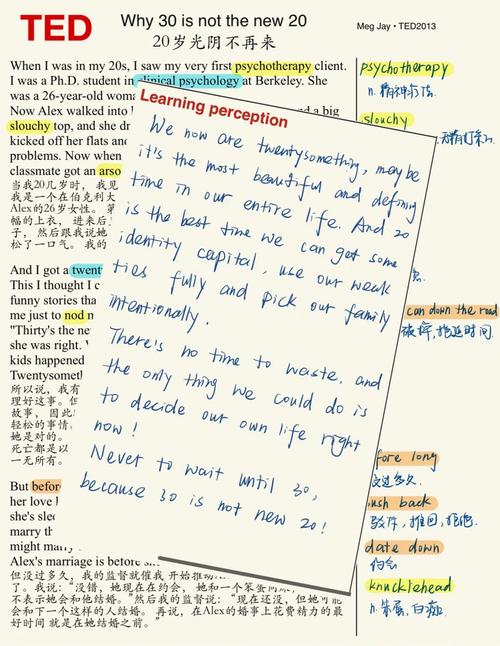 TED
Why 30 is not the new 20
Meg Jay • TED2013
20岁光阴不再来
When I was in my 20s, I saw my very first psychotherapy client.
I was a Ph.D. student in clinical psychology at Berkeley. She
was a 26-year-old woma
Now Alex walked into
d a big
slouchy top, and she dr
kicked off her flats and
problems. Now when
classmate got an arso
当我20几岁时，我见
我是一个在伯克利大
Alex的26岁女性。
幅的上衣，进来后
子，然后跟我说她
松了一口气。我的
And I got a twent
This I thought I c
funny stories that
me just to nod
"Thirty's the ne
she was right.
kids happened
Twentysomet
所以说，我有
理好这事。但
故事，因此
轻松的事情。
她是对的。
死亡都是以
一无所有。
But before
her love l
she's slee
marry th
might marry
Alex's marriage is before she
但没过多久，我的监督就催我 开始推动
了。我说：“没错，她现在在约会，她和一个笨蛋
不表示她会和他结婚。”然后我的监督说：“现在还没，但她可能
会和下一个这样的人结婚。再说，在Alex的婚事上花费精力的最
好时间 就是在她结婚之前。”
Learning perception
We now are twentysomething, maybe
it's the most beautiful and defining
time in our entire life. And 20
is the best time we can get some
identity capital, use our weak
ties fully and pick our family
intentionally.
There's no time to waste, and
the only thing we could do is
to decide our own life right
now!
Never to wait until 30,
because 30 is not new 20!
psychotherapy
n. 精神疗法
slouchy
can down the road
拖延时间
fore long
没过多久
ush back
推回, 拒绝
date down
约会
knucklehead
n. 笨蛋, 白痴